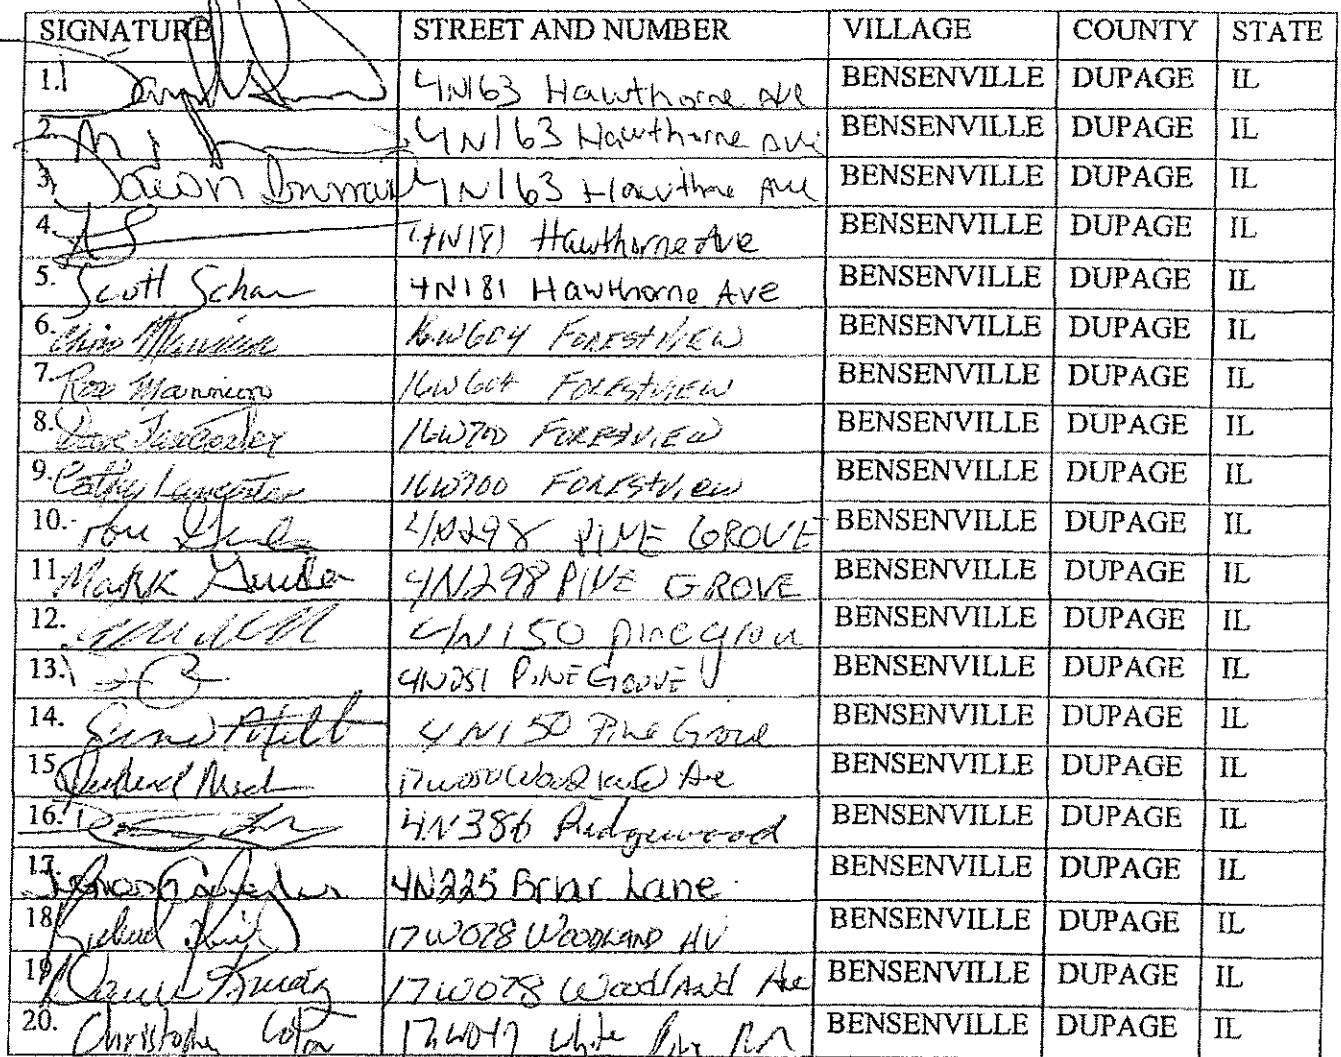 SIGNATURE STREET AND NUMBER VILLAGE COUNTY STATE
1. 4N163 Hawthorne Ave BENSENVILLE DUPAGE IL
2. 4N163 Hawthorne Ave BENSENVILLE DUPAGE IL
3. Dawn 4N163 Hawthorne Ave BENSENVILLE DUPAGE IL
4. 4N181 Hawthorne Ave BENSENVILLE DUPAGE IL
5. Scott 4N181 Hawthorne Ave BENSENVILLE DUPAGE IL
6. 16W604 FORESTVIEW BENSENVILLE DUPAGE IL
7. Rose Mannion 16W604 FORESTVIEW BENSENVILLE DUPAGE IL
8. Dave Lancaster 16W700 FORESTVIEW BENSENVILLE DUPAGE IL
9. Cathy Lancaster 16W700 FORESTVIEW BENSENVILLE DUPAGE IL
10. 4N298 PINE GROVE BENSENVILLE DUPAGE IL
11. Mark 4N298 PINE GROVE BENSENVILLE DUPAGE IL
12. 4N150 Pine grove BENSENVILLE DUPAGE IL
13. 4N251 PINE GROVE BENSENVILLE DUPAGE IL
14. 4N150 Pine Grove BENSENVILLE DUPAGE IL
15. Ave BENSENVILLE DUPAGE IL
16. 4N386 Ridgewood BENSENVILLE DUPAGE IL
17. 4N225 Briar Lane BENSENVILLE DUPAGE IL
18. Richard 17W078 WOODLAND AV BENSENVILLE DUPAGE IL
19. 17W078 Woodland Ave BENSENVILLE DUPAGE IL
20. Christopher 17W047 White Pine BENSENVILLE DUPAGE IL